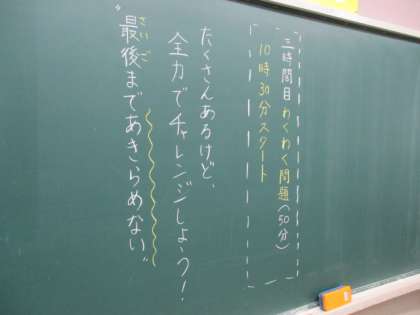 三時間目 わくわく問題(50分)
10時30分スタート
たくさんあるけど、
全力でチャレンジしよう!
"最後まであきらめない"
さいご